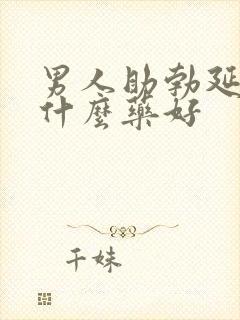 男人助勃延
什麼藥好
千妹